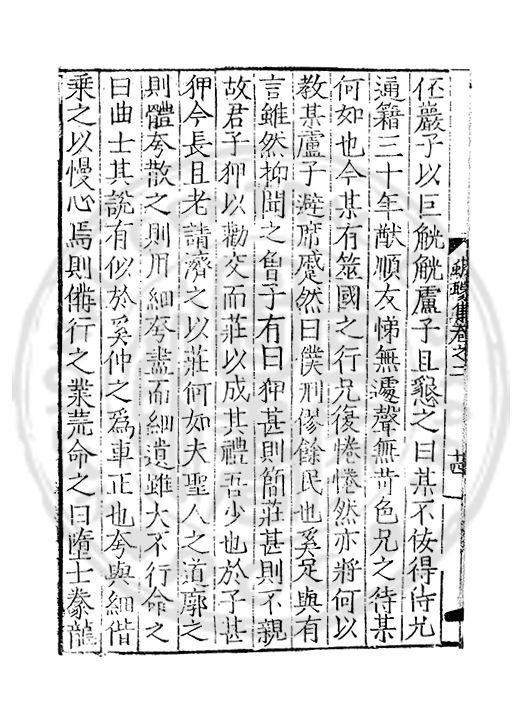 伾巖子以巨觥觥盧子且懇之曰某不佞得侍兄
通籍三十年猷順友悌無遽聲無苛色兄之待某
何如也今某有筮國之行兄復惓惓然亦將何以
教某盧子避席蹙然曰僕刑僇餘民也奚足與有
言雖然抑聞之魯子有曰狎甚則簡莊甚則不親
故君子狎以勸交而莊以成其禮吾少也於子甚
狎今長且老請濟之以莊何如夫聖人之道廓之
則體夸散之則用細夸盡而細遺雖大不行命之
曰曲士其說有似於奚仲之爲車正也夸與細偕
乘之以慢心焉則備行之業荒命之曰墮士豢龍
蠛蠓集卷之二
十四